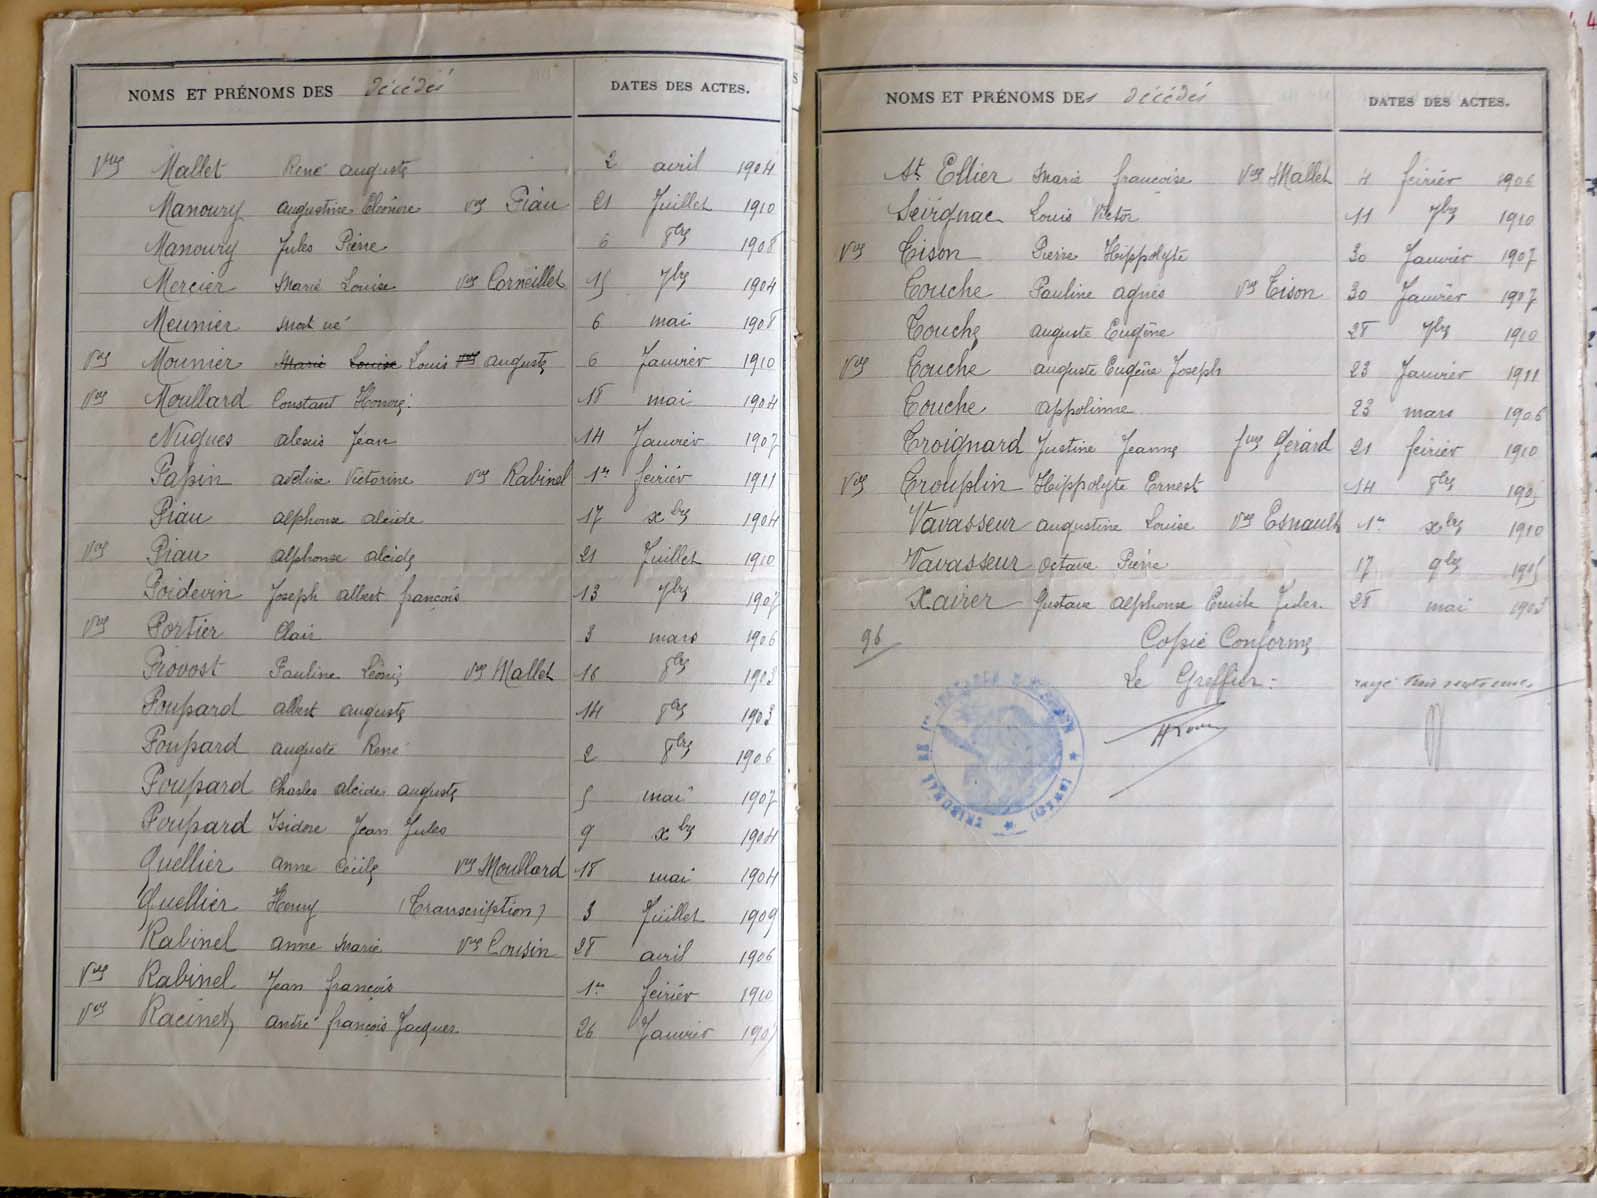 NOMS ET PRÉNOMS DES décédés DATES DES ACTES.
Vve Mallet René auguste 2 avril 1904
Manoury augustine Eléonore Vve Piau 21 Juillet 1910
Manoury Jules Pierre 6 8bre 1908
Mercier Marie Louise Vve Corneillet 15 7bre 1904
Meunier Mort né 6 mai 1908
Vve Mounier Marie Louise Louis auguste 6 Janvier 1910
Vve Moullard Constant Honoré 18 mai 1904
Nugues alexis Jean 14 Janvier 1907
Papin adeline Victorine Vve Rabinel 1er février 1911
Piau alphonse alcide 17 xbre 1904
Vve Piau alphonse alcide 21 Juillet 1910
Poidevin Joseph albert françois 13 7bre 1907
Vve Portier Clair 3 mars 1906
Provost Pauline Léonie Vve Mallet 16 8bre 1903
Poupard albert auguste 14 8bre 1903
Poupard auguste René 2 8bre 1906
Poupard Charles alcide auguste 5 mai 1907
Poupard Isidore Jean Jules 9 xbre 1904
Quellier anne Cécile Vve Moullard 18 mai 1904
Quellier Henry (Transcription) 3 Juillet 1909
Rabinel anne Marie Vve Cousin 28 avril 1906
Vve Rabinel Jean françois 1er février 1910
Vve Racinet andré françois Jacques 26 Janvier 1907
NOMS ET PRÉNOMS DES décédés DATES DES ACTES.
St Ellier Marie francoise Vve Mallet 4 février 1906
Sévignac Louis Victor 11 7bre 1910
Vve Tison Pierre Hippolyte 30 Janvier 1907
Touche Pauline agnès Vve Tison 30 Janvier 1907
Touche auguste Eugène 28 7bre 1910
Vve Touche auguste Eugène Joseph 23 Janvier 1911
Touche appolinne 23 mars 1906
Troignard Justine Jeanne fme Gérard 21 février 1910
Vve Trouplin Hippolyte Ernest 14 8bre
Vavasseur augustine Louise Vve Esnault 1er xbre 1910
Vavasseur Octave Pierre 17 9bre 1905
Xairer Gustave alphonse Emile Jules 28 mai 1903
96 Copie Conforme
Le Greffier: rayé trois mots
TRIBUNAL DE 1re INSTANCE